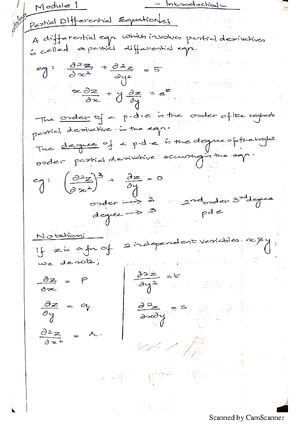 Module 1 - Introduction -
Partial Differential Equations
A differential eqn. which involves partial derivatives
is called a partial differential eqn.
eg: ∂²z/∂x² + ∂²z/∂y² = 5
x ∂z/∂x + y ∂z/∂y = eˣ
The order of a p.d.e is the order of the highest
partial derivative in the eqn.
The degree of a p.d.e is the degree of the highest
order partial derivative occurring in the eqn.
eg: (∂²z/∂x²)³ + ∂z/∂y = 0
order → 2 2nd order 3rd degree
degree → 3 pde
Notation:
If z is a fn of 2 independent variables x & y,
we denote,
∂z/∂x = p ∂²z/∂y² = t
∂z/∂y = q ∂²z/∂x∂y = s
∂²z/∂x² = r.
Scanned by CamScanner